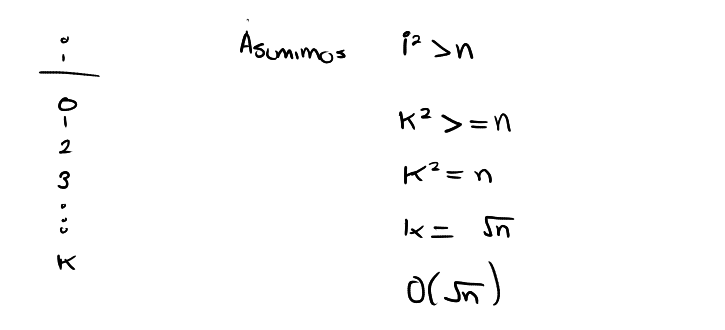 i
0
1
2
3
⋮
K
Asumimos i² > n
K² >= n
K² = n
K = √n
O(√n)